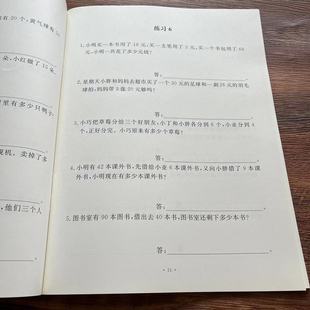 练习 6
1.小明买一本书用了18元,买一支笔用了5元,买一个书包用了68
元。小明一共花了多少钱?
答:
2.星期天小胖和妈妈去超市买了一个30元的足球和一副25元的羽毛
球拍,妈妈带5张20元够吗?
答:
3.小巧把草莓分给三个好朋友,小丁和小胖各分到6个,小亚分到4
个,正好分完。小巧原来有多少个草莓?
答:
4.小明有42本课外书,先借给小亚6本课外书,又向小胖借了9本课
外书,小明现在有多少本课外书?
答:
5.图书室有90本图书,借出去40本书,图书室还剩下多少本书?
答:
朵,小红做了15
里有多少只鸭子
视机,卖掉了多
,他们三个人